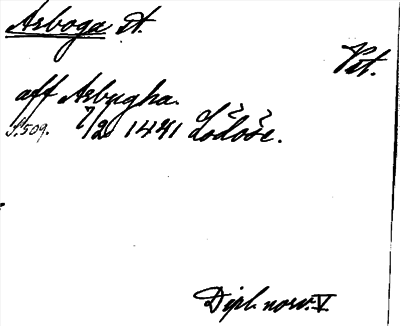 Arboga st.
Vst.
aff Arbugha.
S. 509. 7/2 1441 Lödöse.
Dipl. norv. V.